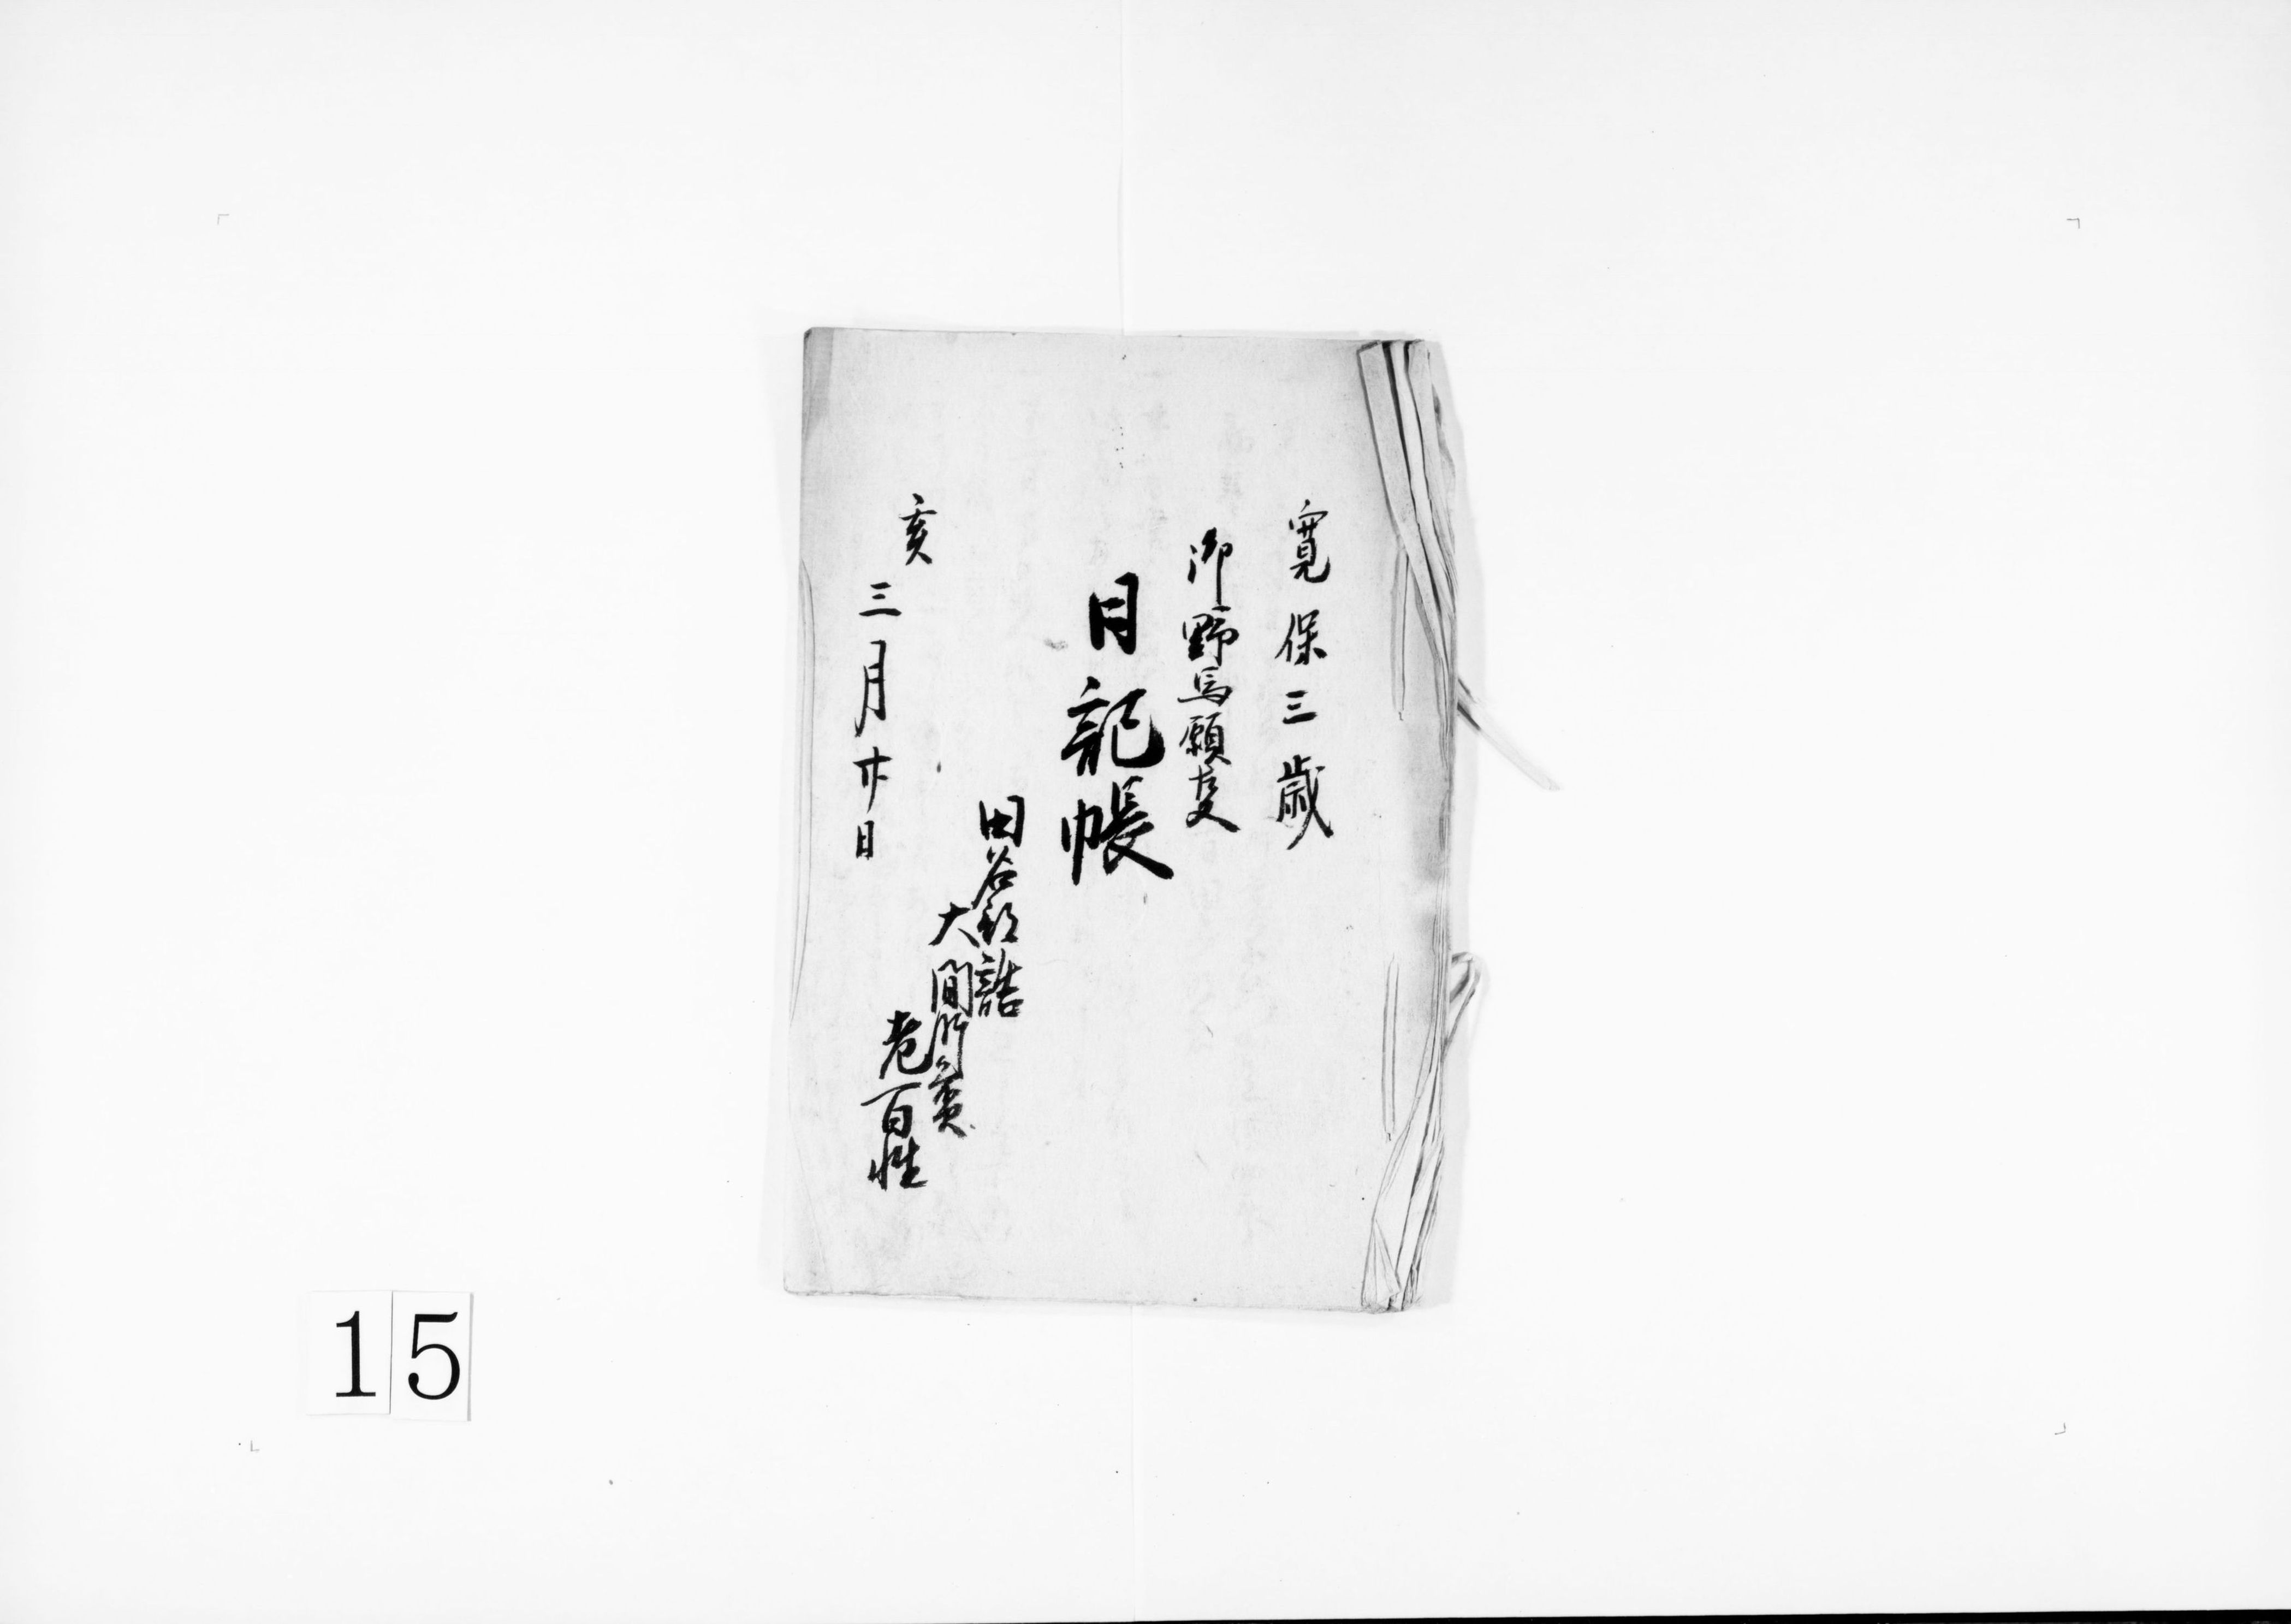 寛保三歳
御野馬願
日記帳
田名部詰
大間
老百姓
亥
三月廿日
15